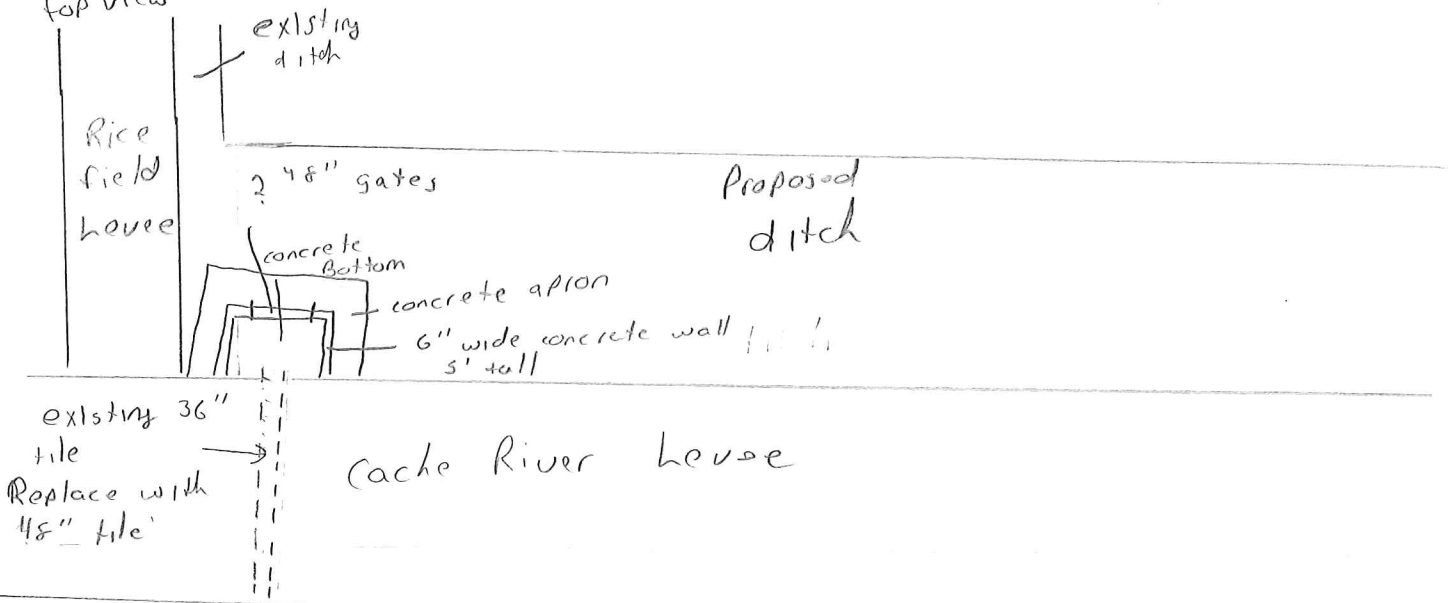 top view
existing
ditch
Rice
field
Levee
2 48" gates
Proposed
ditch
concrete
Bottom
concrete apron
6" wide concrete wall
5' tall
existing 36"
tile
Replace with
48" tile
Cache River Levee